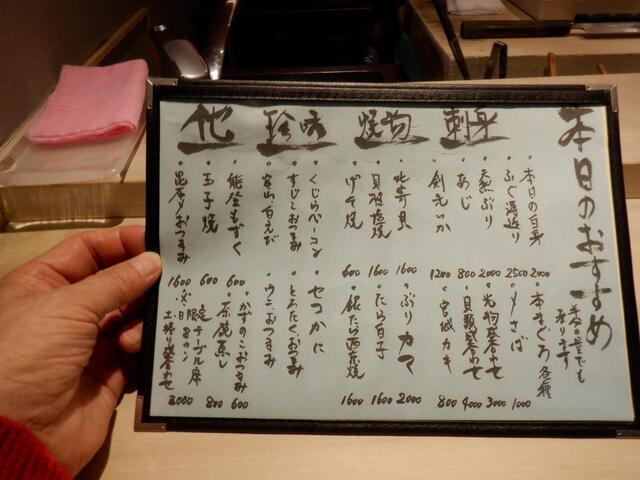 本日のおすすめ
半分の量でも
承ります
刺身
・本日の白身 2000
・ふぐ湯通り 2500
・天然ぶり 2000
・あじ 800
・剣先いか 1200
・本まぐろ各種
・〆さば 1000
・光物盛合わせ 3000
・貝類盛合わせ 4000
・宮城カキ 800
焼物
・北寄貝 1600
・貝柱塩焼 1600
・げそ焼 600
・ぶりカマ 2000
・たら白子 1600
・銀だら西京焼 1600
珍味
・くじらベーコン
・すじことおつまみ
・富山白えび
・セコかに
・とろたくおつまみ
・ウニおつまみ
他
・能登もずく 600
・玉子焼 600
・昆布〆おつまみ 1600
・かずのこおつまみ 600
・茶碗蒸し 800
・火・日 限定
テーブル席
土握り盛合わせ 3000